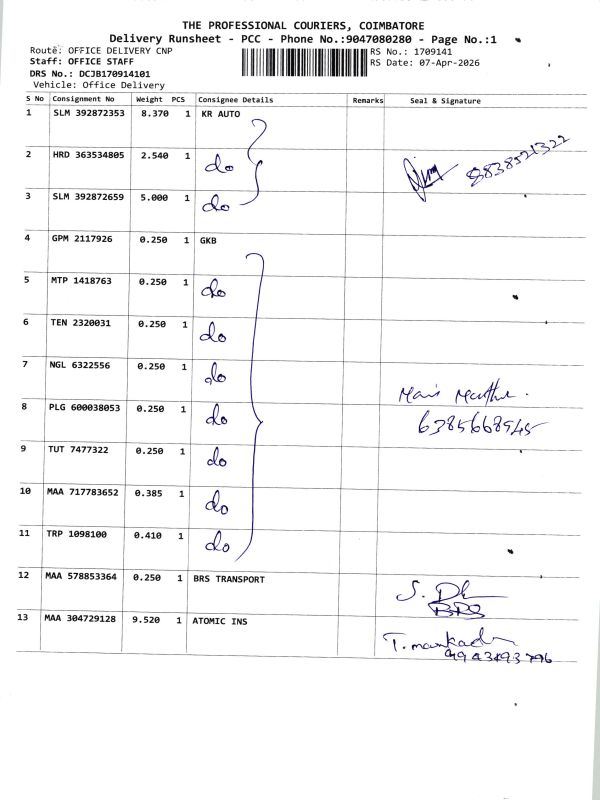 THE PROFESSIONAL COURIERS, COIMBATORE
Delivery Runsheet - PCC - Phone No.:9047080280 - Page No.:1
Route: OFFICE DELIVERY CNP
RS No.: 1709141
Staff: OFFICE STAFF
RS Date: 07-Apr-2026
DRS No.: DCJB170914101
Vehicle: Office Delivery
S No Consignment No Weight PCS Consignee Details Remarks Seal & Signature
1 SLM 392872353 8.370 1 KR AUTO
2 HRD 363534805 2.540 1 do
9838521322
3 SLM 392872659 5.000 1 do
4 GPM 2117926 0.250 1 GKB
5 MTP 1418763 0.250 1 do
6 TEN 2320031 0.250 1 do
7 NGL 6322556 0.250 1 do
8 PLG 600038053 0.250 1 do
6385668945
9 TUT 7477322 0.250 1 do
10 MAA 717783652 0.385 1 do
11 TRP 1098100 0.410 1 do
12 MAA 578853364 0.250 1 BRS TRANSPORT
BRS
13 MAA 304729128 9.520 1 ATOMIC INS